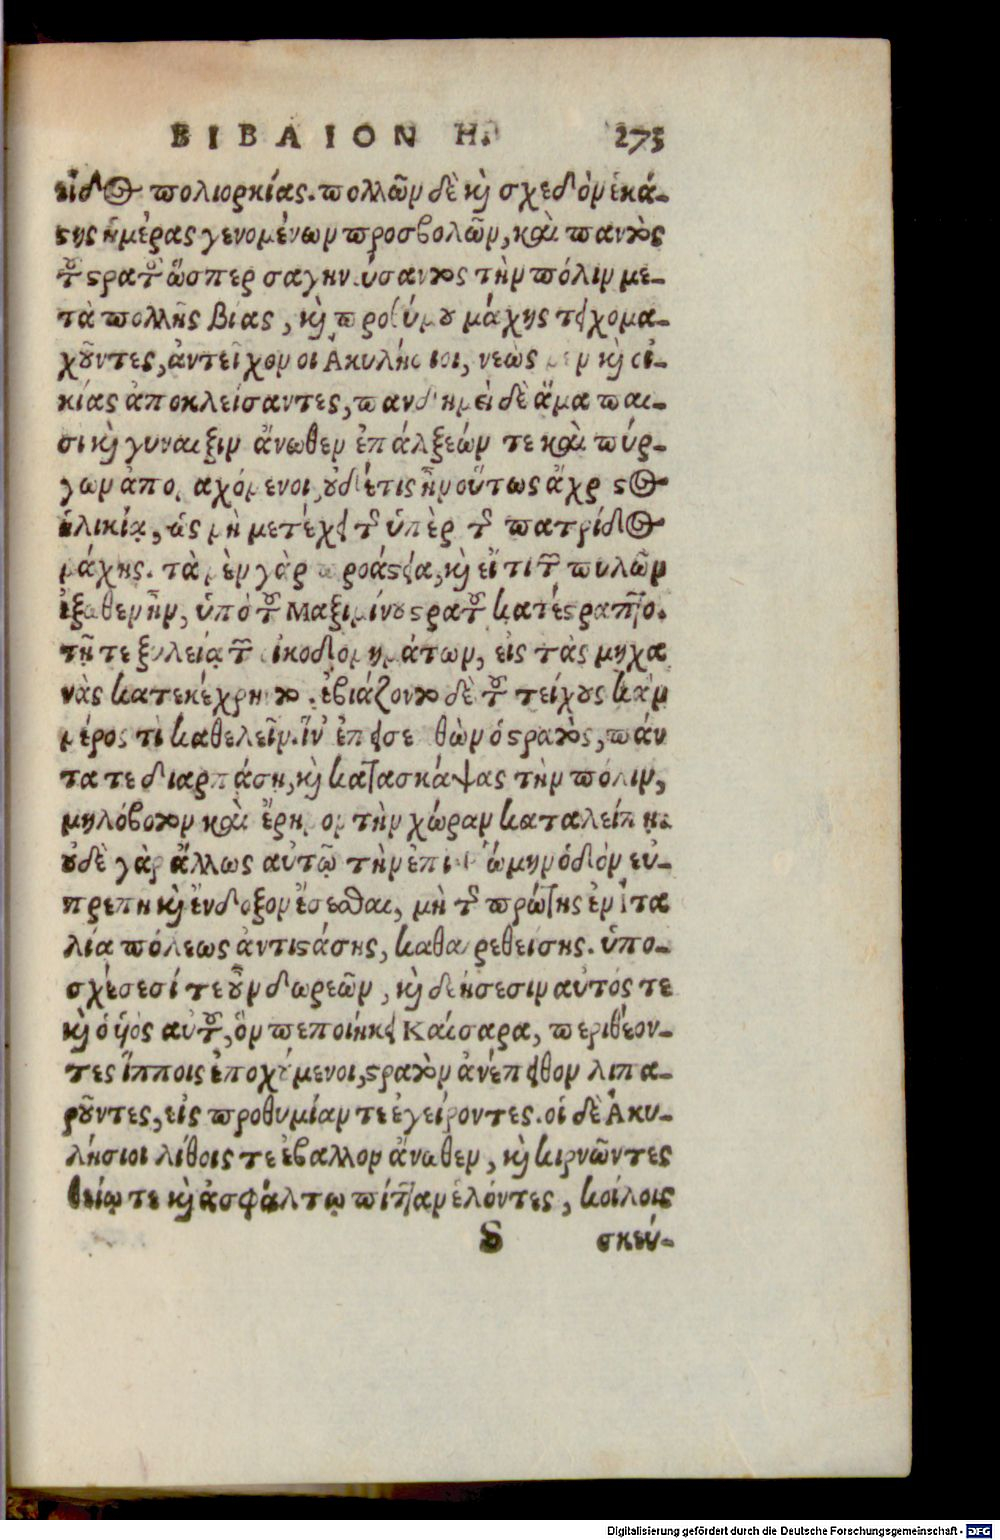 ΒΙΒΛΙΟΝ Η. 273
εἶδος πολιορκίας. πολλῶν δὲ καὶ σχεδὸν ἑκά-
στης ἡμέρας γενομένων προσβολῶν, καὶ παντὸς
τοῦ στρατοῦ ὥσπερ σαγηνεύσαντος τὴν πόλιν με-
τὰ πολλῆς βίας, καὶ προθύμου μάχης τειχομα-
χοῦντες, ἀντεῖχον οἱ Ἀκυλήσιοι, νεὼς μὲν καὶ οἰ-
κίας ἀποκλείσαντες, πανδημεὶ δὲ ἅμα παι-
σὶ καὶ γυναιξὶν ἄνωθεν ἐπάλξεών τε καὶ πύρ-
γων ἀπομαχόμενοι, οὐδέ τις ἦν οὕτως ἄχρηστος
ἡλικία, ὡς μὴ μετέχειν τῆς ὑπὲρ τῆς πατρίδος
μάχης. τὰ μὲν γὰρ προάστεια, καὶ εἴ τι τῶν πυλῶν
ἔξωθεν ἦν, ὑπὸ τοῦ Μαξιμίνου στρατοῦ κατέστραπτο.
τῇ τε ξυλείᾳ τῶν οἰκοδομημάτων, εἰς τὰς μηχα
νὰς κατεκέχρηντο. ἐβιάζοντο δὲ τοῦ τείχους κἂν
μέρος τὶ καθελεῖν. ἵν' ἐπεισελθὼν ὁ στρατὸς, πάν
τα τε διαρπάσῃ, καὶ κατασκάψας τὴν πόλιν,
μηλόβοτον καὶ ἔρημον τὴν χώραν καταλείπῃ.
οὐδὲ γὰρ ἄλλως αὐτῷ τὴν ἐπὶ Ῥώμην ὁδὸν εὐ-
πρεπῆ καὶ ἔνδοξον ἔσεσθαι, μὴ τῆς πρώτης ἐν Ἰτα
λία πόλεως ἀντιστάσης, καθαιρεθείσης. ὑπο-
σχέσεσί τε οὖν δωρεῶν, καὶ δεήσεσιν αὐτός τε
καὶ ὁ υἱὸς αὐτοῦ, ὃν πεποιήκει Καίσαρα, περιθέον-
τες ἵπποις ἐποχούμενοι, στρατὸν ἀνέπειθον λιπα-
ροῦντες, εἰς προθυμίαν τε ἐγείροντες. οἱ δὲ Ἀκυ-
λήσιοι λίθοις τε ἔβαλλον ἄνωθεν, καὶ κιρνῶντες
θείῳ τε καὶ ἀσφάλτῳ πίτταν ἑλόντες, κοίλοις
S σκεύ-
Digitalisierung gefördert durch die Deutsche Forschungsgemeinschaft - DFG